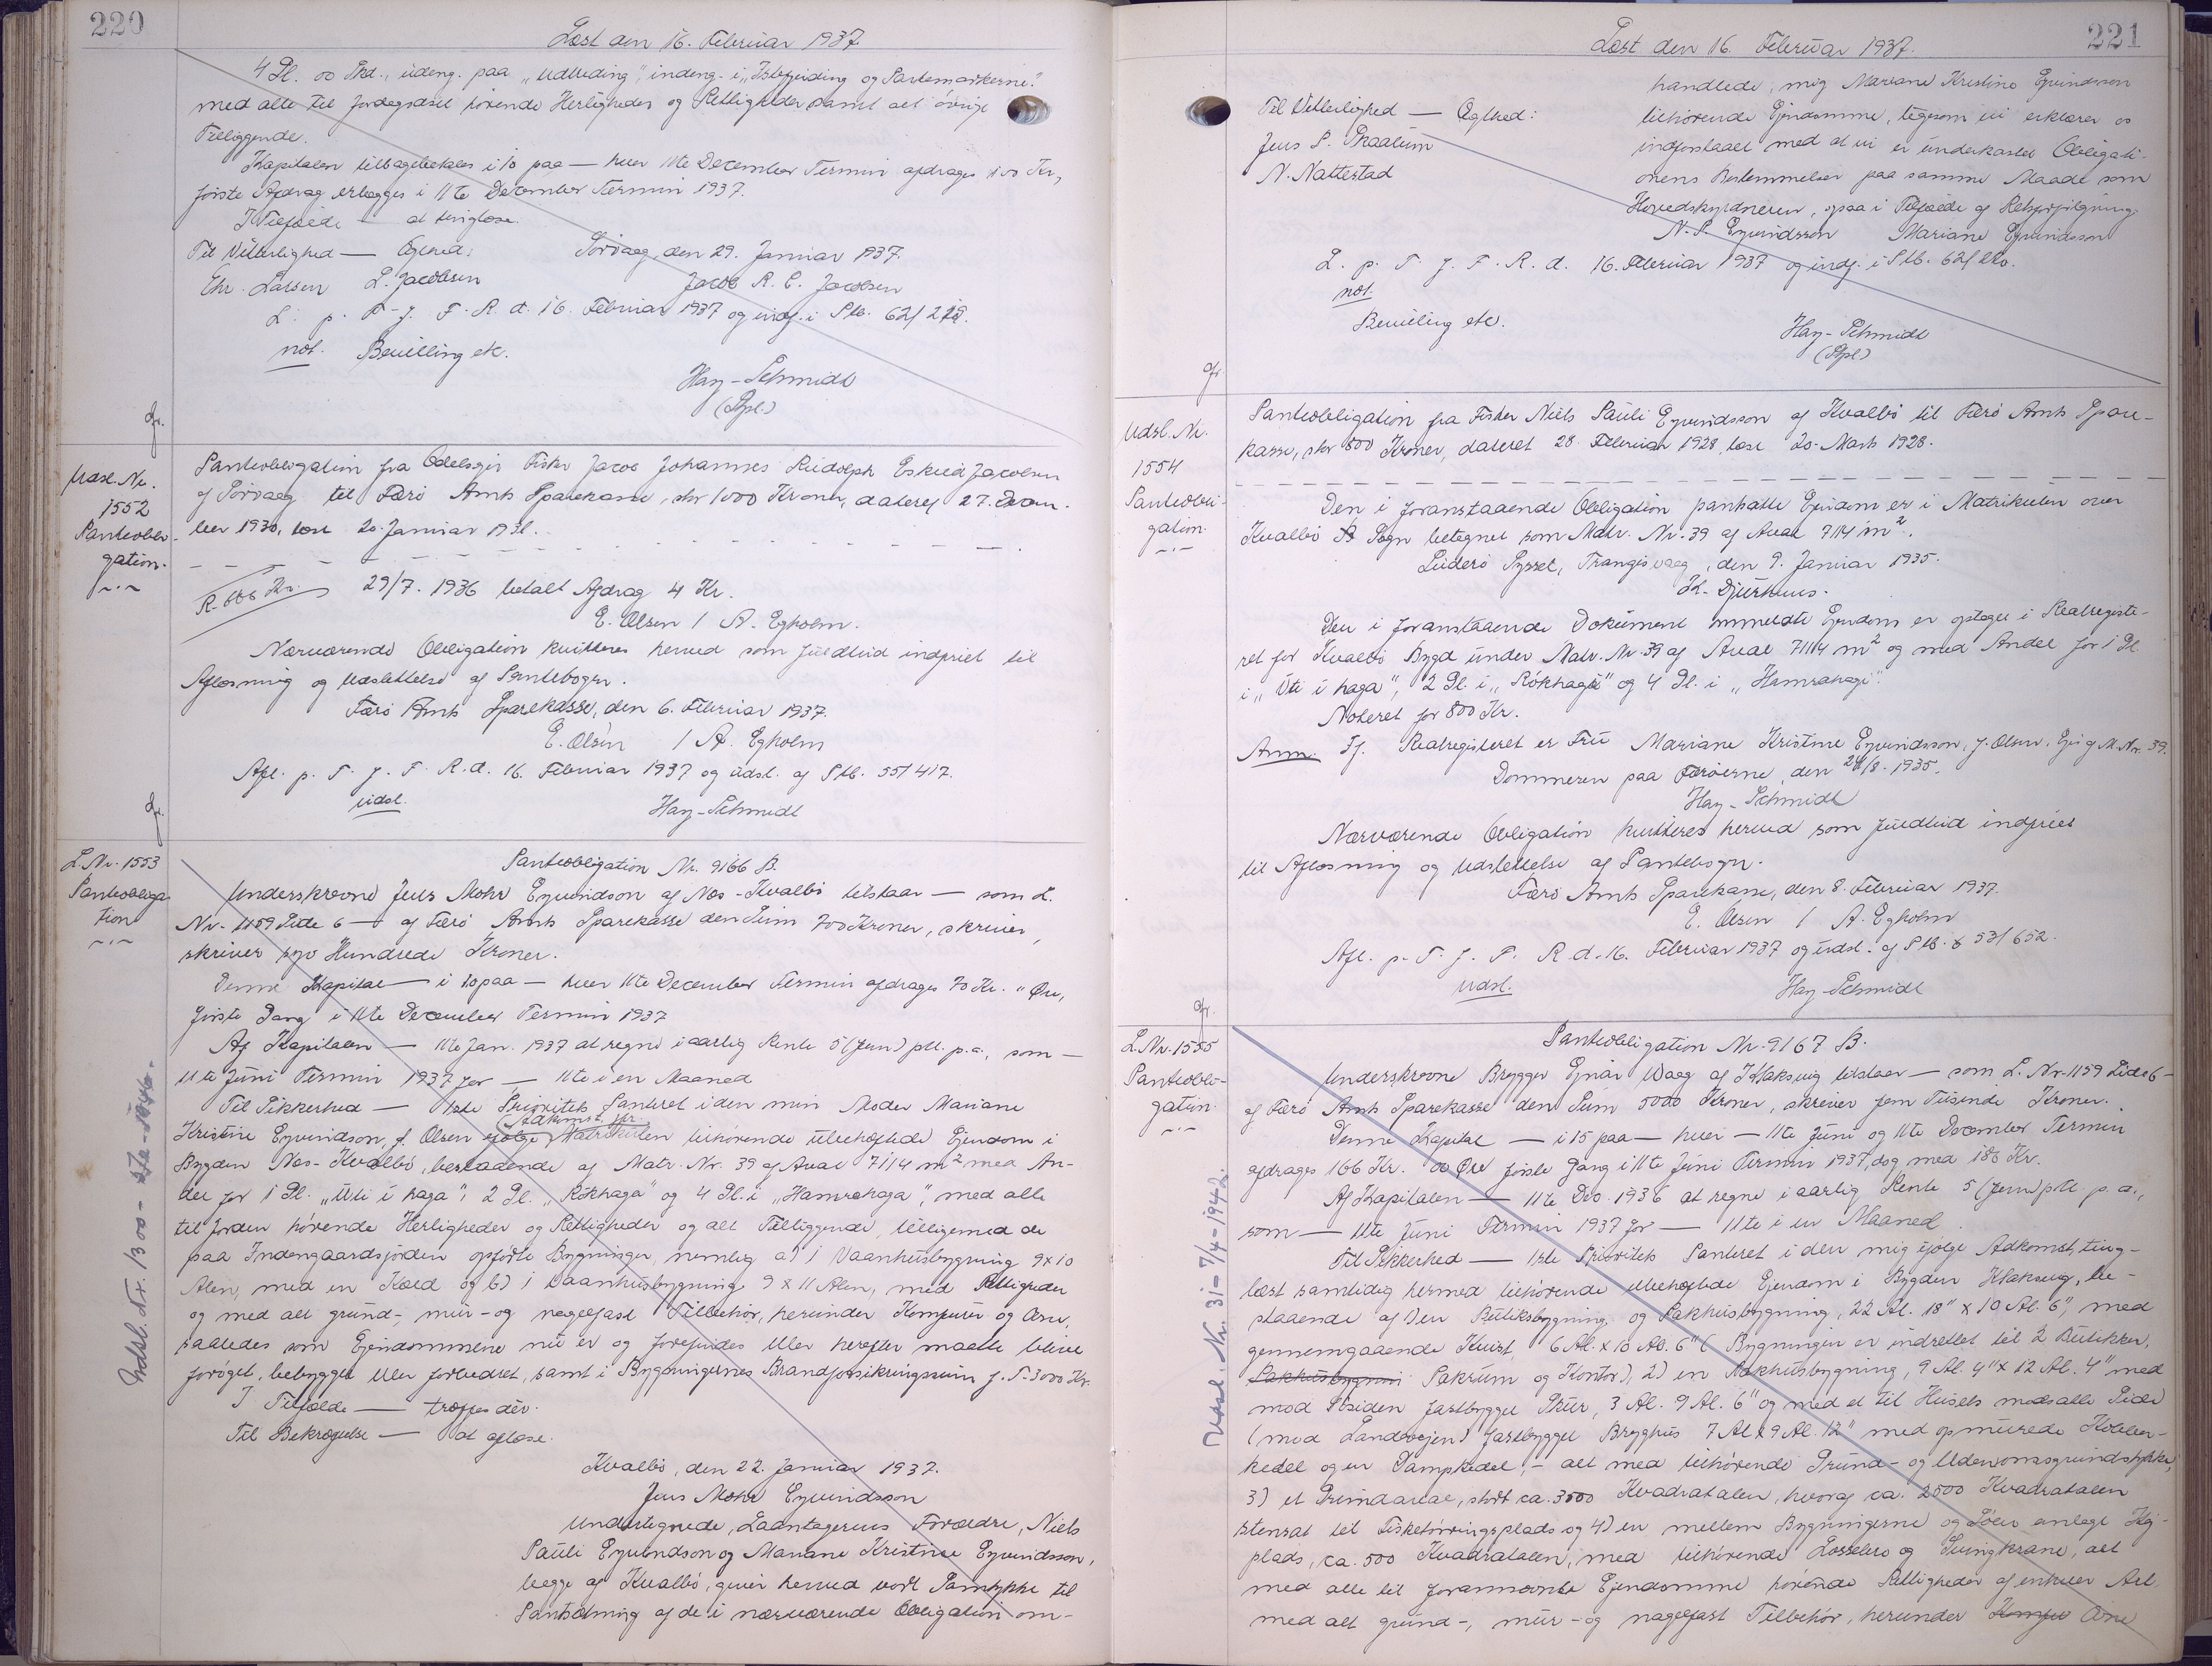 220
Læst den 16. Februar 1937.
4 Gl. 00 Skd., udeng. paa „Udluding”, indeng. i „ og Partemarkerne”
med alle til Jordegodset hørende Herligheder og Rettigheder samt alt øvrige
Tilliggende.
Kapitalen tilbagebetales i 10 paa — hver 11te December Termin afdrages 100 Kr.,
første Afdrag erlægges i 11te December Termin 1937.
I Tilfælde — at tinglæse.
Til Vitterlighed — Ægthed: Porvaag, den 29. Januar 1937.
Chr. Larsen L. Jacobsen Jacob R. E. Jacobsen
L. p. T. f. F. R. d. 16. Februar 1937 og indf. i Skb. 62/218.
not. Bevilling etc.
Hay-Schmidt
(Gpl.)
Gr.
Udsl. Nr.
1552
Panteobli-
gation.
Panteobligation fra Odelsgir Fisker Jacob Johannes Rudolph Eskild Jacobsen
af Porvaag til Færø Amts Sparekasse, stor 1000 Kroner, dateret 27. Decem-
ber 1930, læst 20. Januar 1931.
R. 666 Kr. 29/7. 1936 betalt Afdrag 4 Kr.
E. Olsen / A. Egholm.
Nærværende Obligation kvitteres herved som fuldtud indfriet til
Aflæsning og Udslettelse af Pantebogen.
Færø Amts Sparekasse, den 6. Februar 1937.
E. Olsen / A. Egholm
Afl. p. T. f. F. R. d. 16. Februar 1937 og udsl. af Skb. 55/417.
udsl. Hay-Schmidt
Gr.
L. Nr. 1553
Panteobliga
tion
Udsl. Nr. 1300 - - 1946.
Panteobligation Nr. 9166 B.
Underskrevne Jens Mohr Eyvindson af Nes-Kvalbø tilstaar — som L.
Nr. 1159 Side 6 — af Færø Amts Sparekasse den Sum 700 Kroner, skriver,
skriver syv Hundrede Kroner.
Denne Kapital — i 10 paa — hver 11te December Termin afdrages 70 Kr. " Øre,
første Gang i 11te December Termin 1937
Af Kapitalen — 11te Jan. 1937 at regne i aarlig Rente 5 (fem) pCt. p.a., som —
11te Juni Termin 1937 for — 11te i en Maaned
Til Sikkerhed — 1ste Prioritets Panteret i den min Moder Mariane
(Adkomst Hr.
Kristine Eyvindson, f. Olsen ifølge Matrikulen tilhørende ubehæftede Ejendom i
Bygden Nes-Kvalbø, bestaaende af Matr. Nr. 39 af Areal 7114 m² med An-
del for 1 Gl. „Uti i haga”, 2 Gl. „Rókhaga” og 4 Gl. i „Hamrahaga”, med alle
til Jorden hørende Herligheder og Rettigheder og alt Tilliggende, tilligemed de
paa Indengaardsjorden opførte Bygninger, nemlig a) 1 Vaanhusbygning 9 x 10
Alen, med en Kold og b) 1 Vaanhusbygning 9 x 11 Alen, med Rettigheder
og med alt grund-, mur- og nagelfast Tilbehør, herunder Komfurer og Ovne,
saaledes som Ejendommene nu er og forefindes eller herefter maatte blive
forøget, bebygget eller forbedret, samt i Bygningernes Brandforsikringssum f. T. 3000 Kr.
I Tilfælde — træffes dér.
Til Bekræftelse — at aflæse.
Kvalbø, den 22. Januar 1937.
Jens Mohr Eyvindsson
Undertegnede, Laantagerens Forældre, Niels
Pauli Eyvindson og Mariane Kristine Eyvindsson,
begge af Kvalbø, giver herved vort Samtykke til
Pantsætning af de i nærværende Obligation om-
221
Læst den 16. Februar 1937.
Til Vitterlighed — Ægthed:
Jens P. Skaalum
N. Nattestad
handlede, mig Mariane Kristine Eyvindsson
tilhørende Ejendomme, ligesom vi erklærer os
indforstaaet med at vi er underkastet Obligati-
onens Bestemmelser paa samme Maade som
Hovedskyldneren, ogsaa i Tilfælde af Retsforfølgning.
N. P. Eyvindsson Mariane Eyvindsson
L. p. T. f. F. R. d. 16. Februar 1937 og indf. i Skb. 62/220.
not.
Bevilling etc. Hay-Schmidt
(Gpl.)
Gr.
Udsl. Nr.
1554
Panteobli-
gation.
Panteobligation fra Fisker Niels Pauli Eyvindsson af Kvalbø til Færø Amts Spare-
kasse, stor 800 Kroner, dateret 28. Februar 1928, læst 20. Marts 1928.
Den i foranstaaende Obligation panthatte Ejendom er i Matrikulen over
Kvalbø Sogn betegnet som Matr. Nr. 39 af Areal 7114 m².
Suderø Syssel, Trangisvaag, den 9. Januar 1935.
Kl. Djurhuus.
Den i foranstaaende Dokument ommeldte Ejendom er optaget i Realregiste-
ret for Kvalbø Bygd under Matr. Nr. 39 af Areal 7114 m² og med Andel for 1 Gl.
i „Úti i haga”, 2 Gl. i „Rókhaga” og 4 Gl. i „Hamrahagi”.
Noteret for 800 Kr.
Anm. Ff. Realregisteret er Fru Mariane Kristine Eyvindsson, f. Olsen, Ejer af M. Nr. 39.
Dommeren paa Færøerne, den 24/8. 1935.
Hay-Schmidt
Nærværende Obligation kvitteres herved som fuldtud indfriet
til Aflæsning og Udslettelse af Pantebogen.
Færø Amts Sparekasse, den 8. Februar 1937.
E. Olsen / A. Egholm
Afl. p. T. f. F. R. d. 16. Februar 1937 og udsl. af Skb. 53/652.
udsl. Hay-Schmidt
Gr.
L. Nr. 1555
Panteobli-
gation
Udsl. Nr. 31 - 7/4 - 1942.
Panteobligation Nr. 9167 B.
Underskrevne Brygger Ejnar Waag af Klaksvig tilstaar — som L. Nr. 1159 Side 6 —
af Færø Amts Sparekasse den Sum 5000 Kroner, skriver fem Tusinde Kroner.
Denne Kapital — i 15 paa — hver — 11te Juni og 11te December Termin
afdrages 166 Kr. 00 Øre første Gang i 11te Juni Termin 1937, dog med 186 Kr.
Af Kapitalen — 11te Dec. 1936 at regne i aarlig Rente 5 (fem) pCt. p.a.,
som — 11te Juni Termin 1937 for — 11te i en Maaned.
Til Sikkerhed — 1ste Prioritets Panteret i den mig ifølge Adkomst, ting-
læst samtidig hermed tilhørende ubehæftede Ejendom i Bygden Klaksvig, be-
staaende af 1) en Butiksbygning og Pakhusbygning, 22 Al. 18" x 10 Al. 6", med
gennemgaaende Kvist, 6 Al. x 10 Al. 6" (Bygningen er indrettet til 2 Butikker,
Pakhusbygnin Pakrum og Kontor), 2) en Pakhusbygning, 9 Al. 4" x 12 Al. 4" med
mod Søsiden fastbygget Skur, 3 Al. 9 Al. 6" og med et til Husets modsatte Side
(mod Landevejen) fastbygget Bryghus 7 Al. x 9 Al. 12" med opmurede Kobber-
kedel og en Dampkedel, - alt med tilhørende Grund- og Udenomsgrundstykke,
3) et Grundareal, stort ca. 3500 Kvadratalen, hvoraf ca. 2500 Kvadratalen
stensat til Fisketørringsplads og 4) en mellem Bygningerne og Søen anlagt Kaj-
plads, ca. 500 Kvadratalen, med tilhørende Lossebro og Svingkrane, alt
med alle til forannævnte Ejendomme hørende Rettigheder af enhver Art,
med alt grund-, mur- og nagelfast Tilbehør, herunder Komfur Ovne